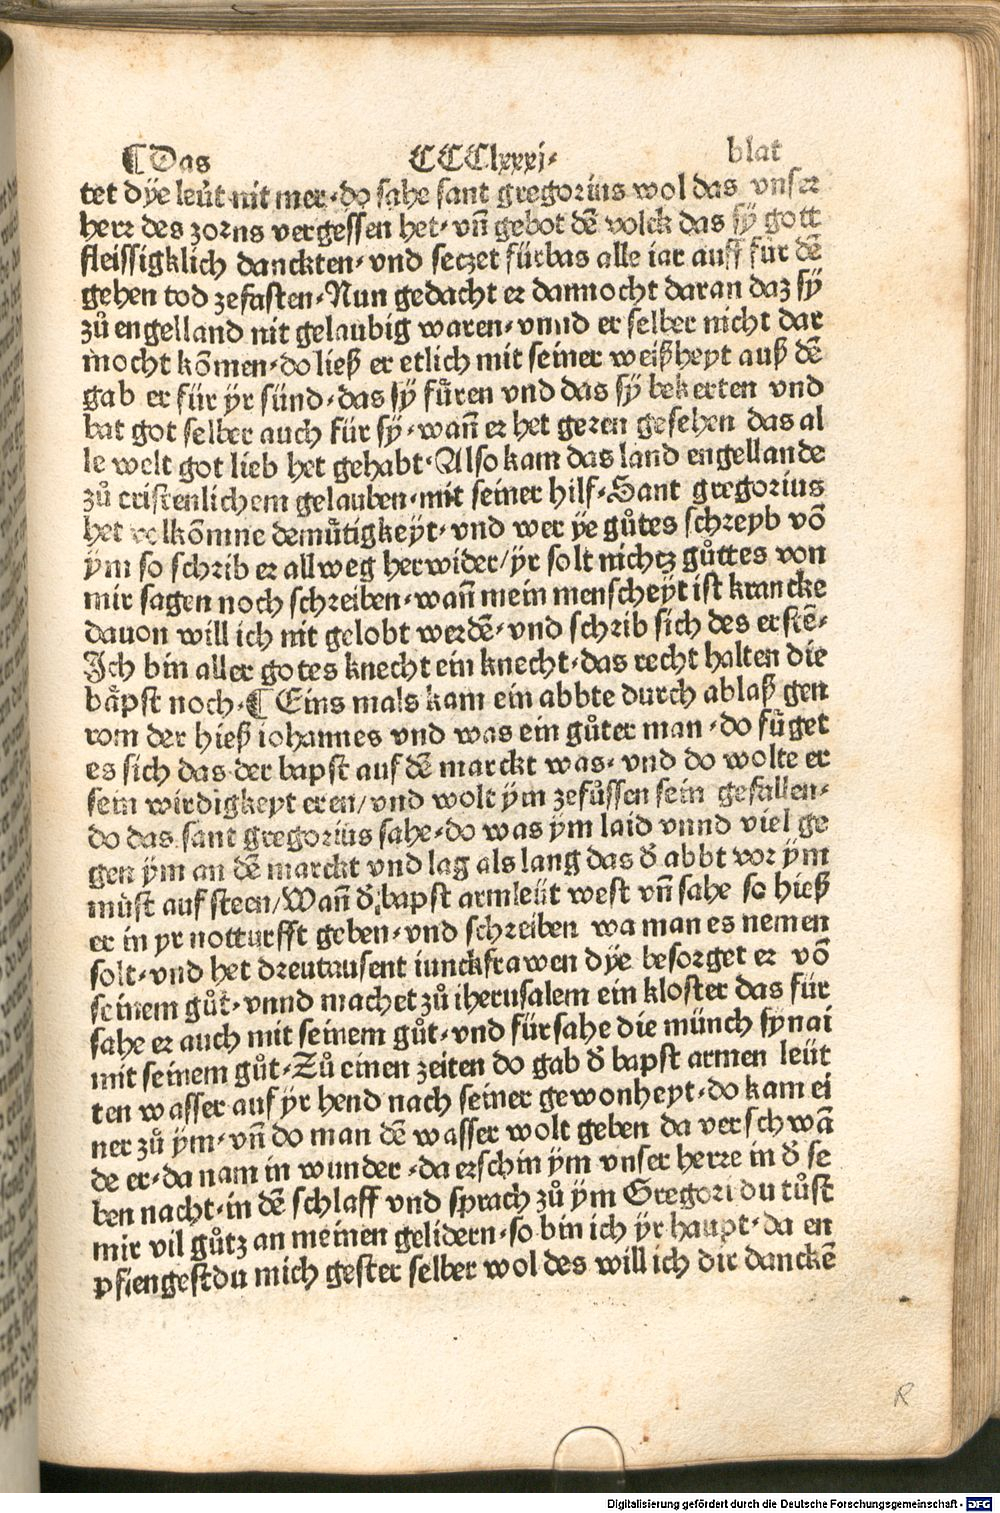 ¶Das CCClxxxj· blat
tet dÿe leüt nit mer·do sahe sant gregorius wol das vnser
herr des zorns vergessen het·vñ gebot dẽ volck das sÿ gott
fleissigklich danckten·vnd seczet fürbas alle iar auff für dẽ
gehen tod zefasten·Nun gedacht er dannocht daran daz sÿ
zů engelland nit gelaubig waren·vnnd er selber nicht dar
mocht kõmen·do ließ er etlich mit seiner weißheyt auß dẽ
gab er für ÿr sünd·das sÿ fůren vnd das sÿ bekerten vnd
bat got selber auch für sÿ·wañ er het geren gesehen das al
le welt got lieb het gehabt·Also kam das land engellande
zů cristenlichem gelauben·mit seiner hilf·Sant gregorius
het volkõmne demůtigkeÿt·vnd wer ÿe gůtes schreyb võ
ÿm so schrib er allweg herwider/ÿr solt nichtz gůttes von
mir sagen noch schreiben·wañ mein menscheÿt ist krancke
dauon will ich nit gelobt werdẽ·vnd schrib sich des erstẽ·
Ich bin aller gotes knecht ein knecht·das recht halten die
bäpst noch·¶Eins mals kam ein abbte durch ablaß gen
rom der hieß iohannes vnd was ein gůter man·do füget
es sich das der bapst auf dẽ marckt was·vnd do wolte er
sein wirdigkeyt eren/vnd wolt ÿm zefůssen sein gefallen·
do das sant gregorius sahe·do was ÿm laid vnnd viel ge
gen ÿm an dẽ marckt vnd lag als lang das d̄ abbt vor ÿm
můst auf steen/Wañ d̄ bapst armleüt west vñ sahe so hieß
er in yr notturfft geben·vnd schreiben wa man es nemen
solt·vnd het dreutausent iunckfrawen dÿe besorget er võ
seinem gůt·vnnd machet zů iherusalem ein kloster das für
sahe er auch mit seinem gůt·vnd fürsahe die münch synai
mit seinem gůt·Zů einen zeiten do gab d̄ bapst armen leüt
ten wasser auf ÿr hend nach seiner gewonheyt·do kam ei
ner zů ÿm·vñ do man dẽ wasser wolt geben da verschwã
de er·da nam in wunder·da erschin ÿm vnser herre in d̄ se
ben nacht·in dẽ schlaff vnd sprach zů ÿm Gregori du tůst
mir vil gůtz an meinen gelidern·so bin ich ÿr haupt·da en
pfiengestdu mich gester selber wol des will ich dir danckẽ
R
Digitalisierung gefördert durch die Deutsche Forschungsgemeinschaft - DFG